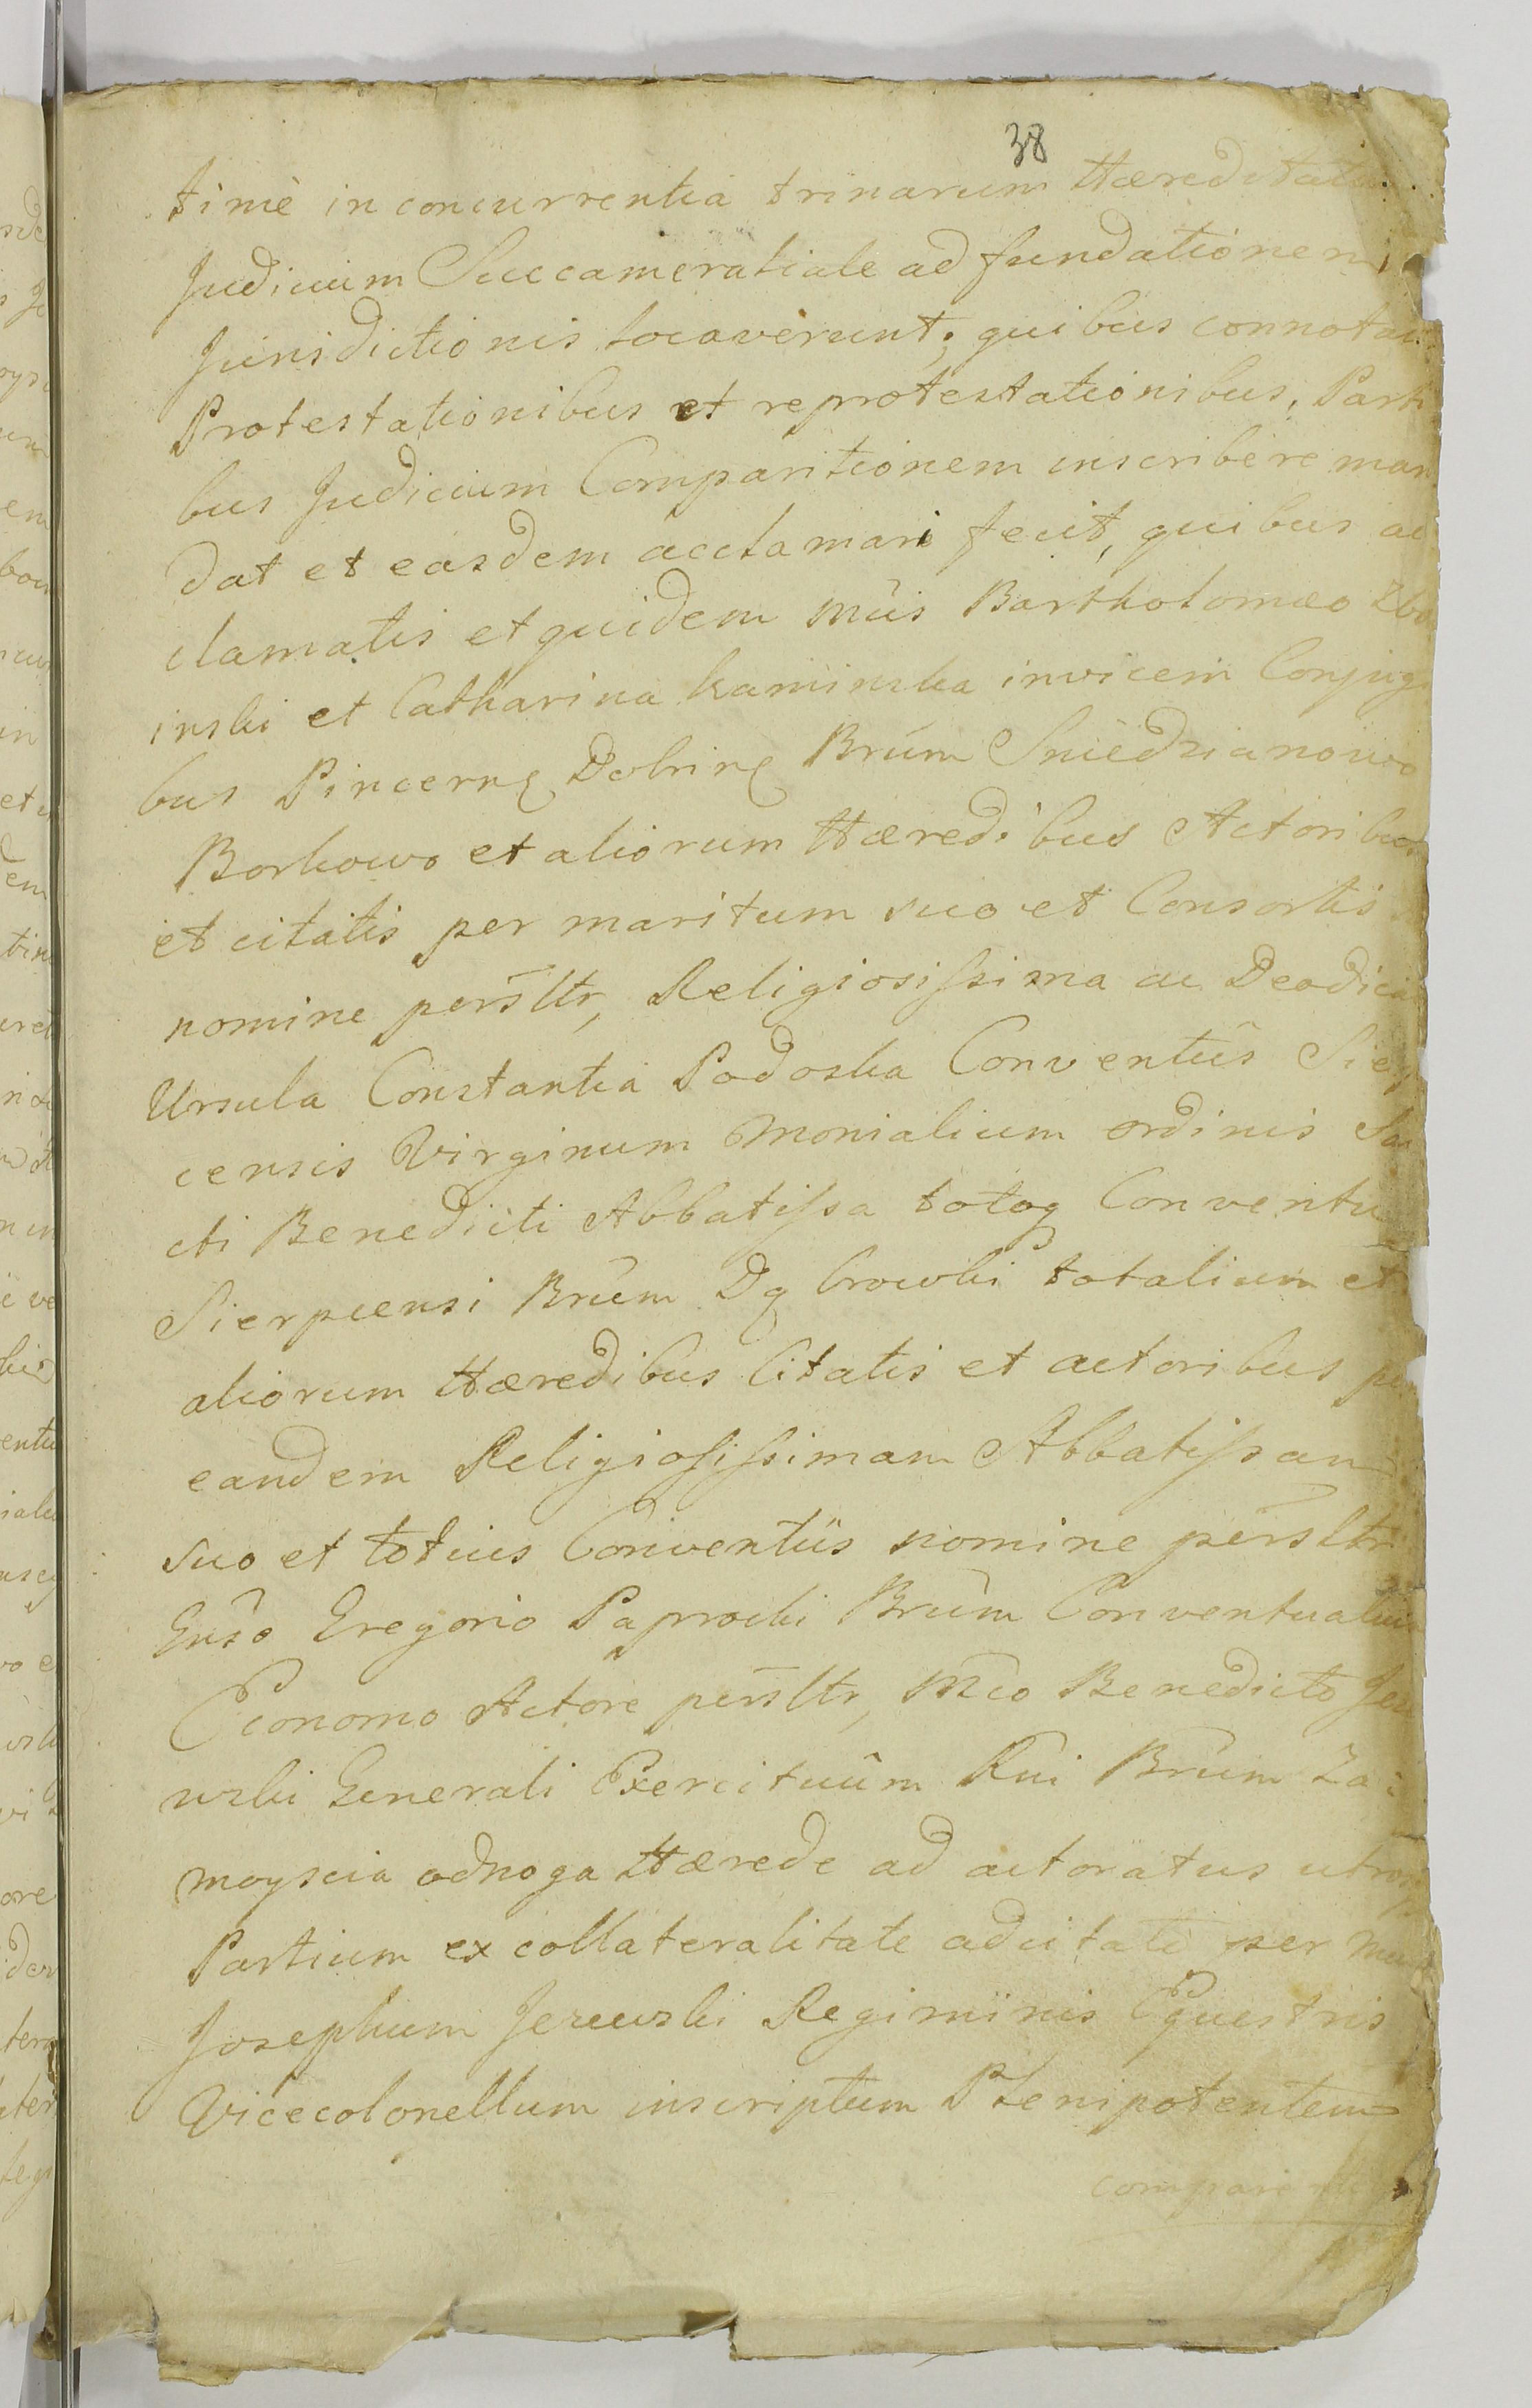 38
timè in concurrentia trinarum Hæreditatu
Judicium Succameratiale ad fundationem
Jurisdictionis locaverunt; quibus connotatis
Protestationibus et reprotestationibus, Parti
bus Judicium Comparitionem inscribere man
dat et easdem acclamari fecit, quibus ac
clamatis et quidem Mcis Bartholomæo Zbo
inski et Catharina Kaminska invicem Conjugi
bus Pincernę Dobrinę Brum Sniedzianowo
Borkowo et aliorum Hæredibus Actoribus
et citatis per maritum suo et Consortis
nomine persltr, Religiosissima ac Deodica
Ursula Constantia Podoska Conventûs Sierp
censis Virginum Monialium ordinis San
cti Benedicti Abbatissa totoq Conventu
Sierpcensi Brum Dąbrowki totalium et
aliorum Hæredibus Citatis et actoribus per
eandem Religiosissimam Abbatissam
suo et totius Conventûs nomine persltr
Gnso Gregorio Paprocki Brum Conventualium
Economo Actore persltr, Mco Benedicto Jez
ewski Generali Exercituûm Rni Brum Za
moyscia odnoga Hærede ad actoratus utrarq
Partium ex collateralitate adcitato per
Josephum Jezewski Regiminis Equestris
Vicecolonellum inscriptum Plenipotentem